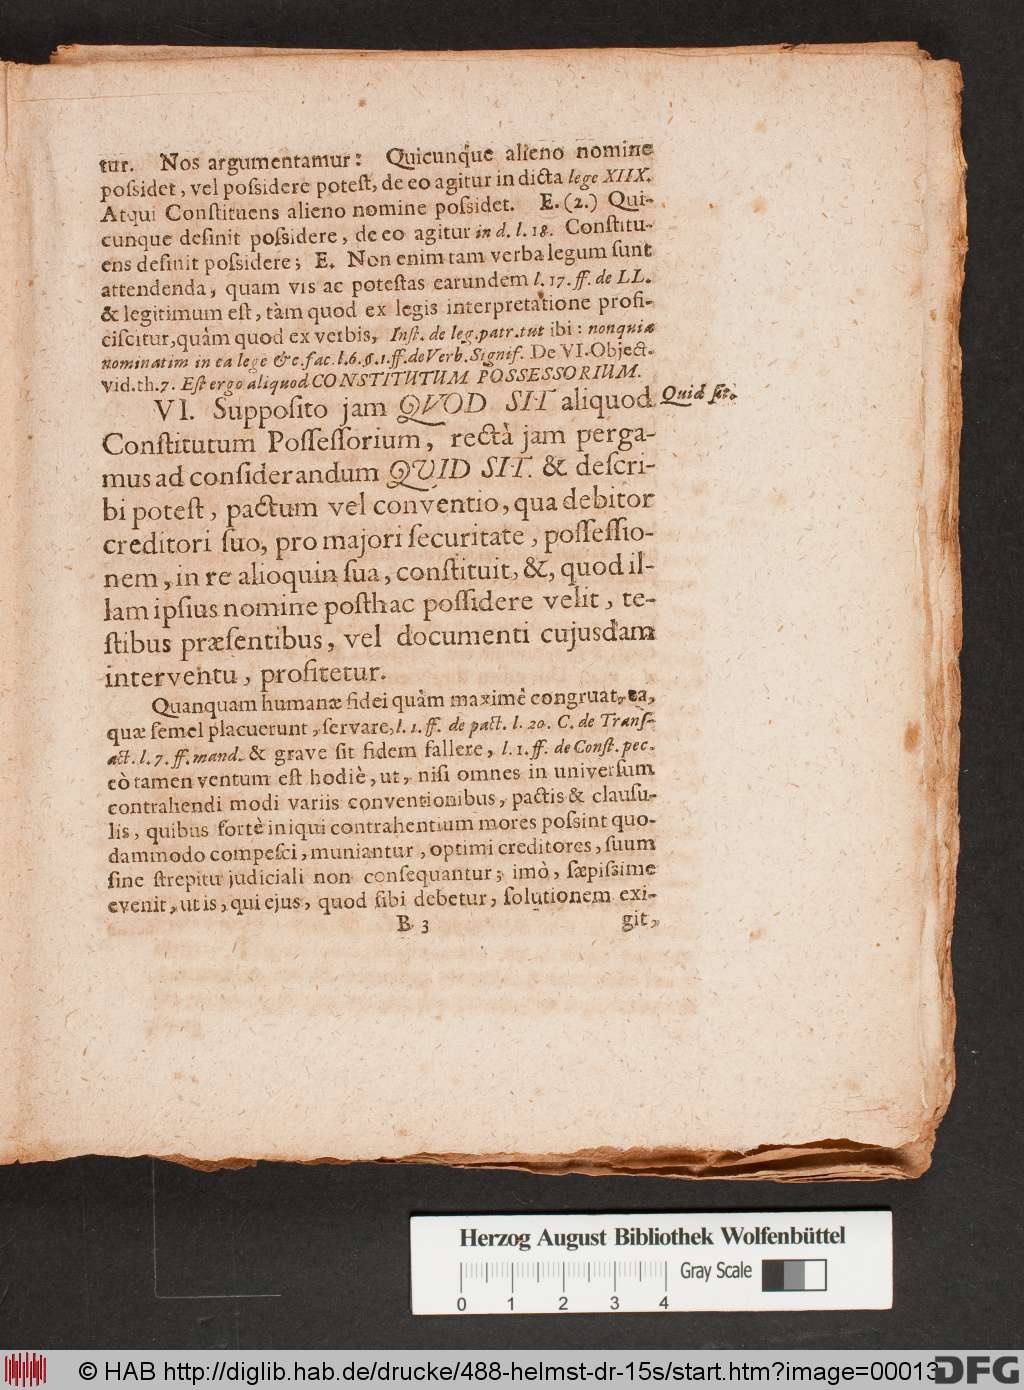 tur. Nos argumentamur: Quicunque alieno nomine
poſsidet, vel poſsidere poteſt, de eo agitur in dicta lege XIIX.
Atqui Conſtituens alieno nomine poſsidet. E. (2.) Qui-
cunque deſinit poſsidere, de eo agitur in d. l. 18. Conſtitu-
ens deſinit poſsidere; E. Non enim tam verba legum ſunt
attendenda, quam vis ac poteſtas earundem l. 17. ff. de LL.
& legitimum eſt, tàm quod ex legis interpretatione profi-
ciſcitur, quàm quod ex verbis, Inſt. de leg. patr. tut ibi: nonquiæ
nominatim in ea lege &c. fac. l. 6. §. 1. ff. de Verb. Signif. De VI. Object.
vid. th. 7. Eſt ergo aliquod CONSTITUTUM POSSESSORIUM.
VI. Suppoſito jam QVOD SIT aliquod Quid ſit.
Conſtitutum Poſſeſſorium, rectà jam perga-
mus ad conſiderandum QVID SIT. & deſcri-
bi poteſt, pactum vel conventio, qua debitor
creditori ſuo, pro majori ſecuritate, poſſeſſio-
nem, in re alioquin ſua, conſtituit, &, quod il-
lam ipſius nomine poſthac poſſidere velit, te-
ſtibus præſentibus, vel documenti cujusdam
interventu, profitetur.
Quanquam humanæ fidei quàm maximè congruat, ea,
quæ ſemel placuerunt, ſervare, l. 1. ff. de pact. l. 20. C. de Tranſ-
act. l. 7. ff. mand. & grave ſit fidem fallere, l. 1. ff. de Conſt. pec.
eò tamen ventum eſt hodiè, ut, niſi omnes in univerſum
contrahendi modi variis conventionibus, pactis & clauſu-
lis, quibus fortè iniqui contrahentium mores poſsint quo-
dammodo compeſci, muniantur, optimi creditores, ſuum
ſine ſtrepitu judiciali non conſequantur; imò, ſæpiſsime
evenit, ut is, qui ejus, quod ſibi debetur, ſolutionem exi-
B 3 git,
Herzog August Bibliothek Wolfenbüttel
Gray Scale
0 1 2 3 4
© HAB http://diglib.hab.de/drucke/488-helmst-dr-15s/start.htm?image=00013
DFG